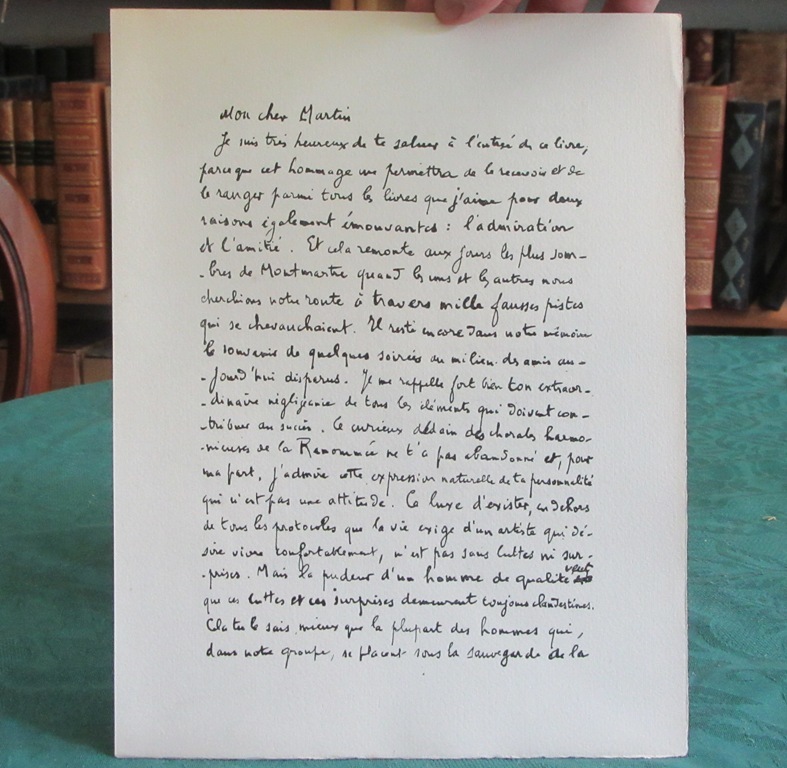 Mon cher Martin
Je suis très heureux de te saluer à l'entrée de ce livre,
parce que cet hommage me permettra de le recevoir et de
le ranger parmi tous les livres que j'aime pour deux
raisons également émouvantes : l'admiration
et l'amitié. Et cela remonte aux jours les plus som-
-bres de Montmartre quand les uns et les autres nous
cherchions notre route à travers mille fausses pistes
qui se chevauchaient. Il reste encore dans notre mémoire
le souvenir de quelques soirées au milieu des amis au-
-jourd'hui disparus. Je me rappelle fort bien ton extraor-
-dinaire négligence de tous les éléments qui doivent con-
-tribuer au succès. Ce curieux dédain des chorales harmo-
-nieuses de la Renommée ne t'a pas abandonné et, pour
ma part, j'admire cette expression naturelle de ta personnalité
qui n'est pas une attitude. Ce luxe d'exister, en dehors
de tous les protocoles que la vie exige d'un artiste qui dé-
sire vivre confortablement, n'est pas sans luttes ni sur-
-prises. Mais la pudeur d'un homme de qualité veut
que ces luttes et ces surprises demeurent toujours clandestines.
Cela tu le sais mieux que la plupart des hommes qui,
dans notre groupe, se placent sous la sauvegarde de la